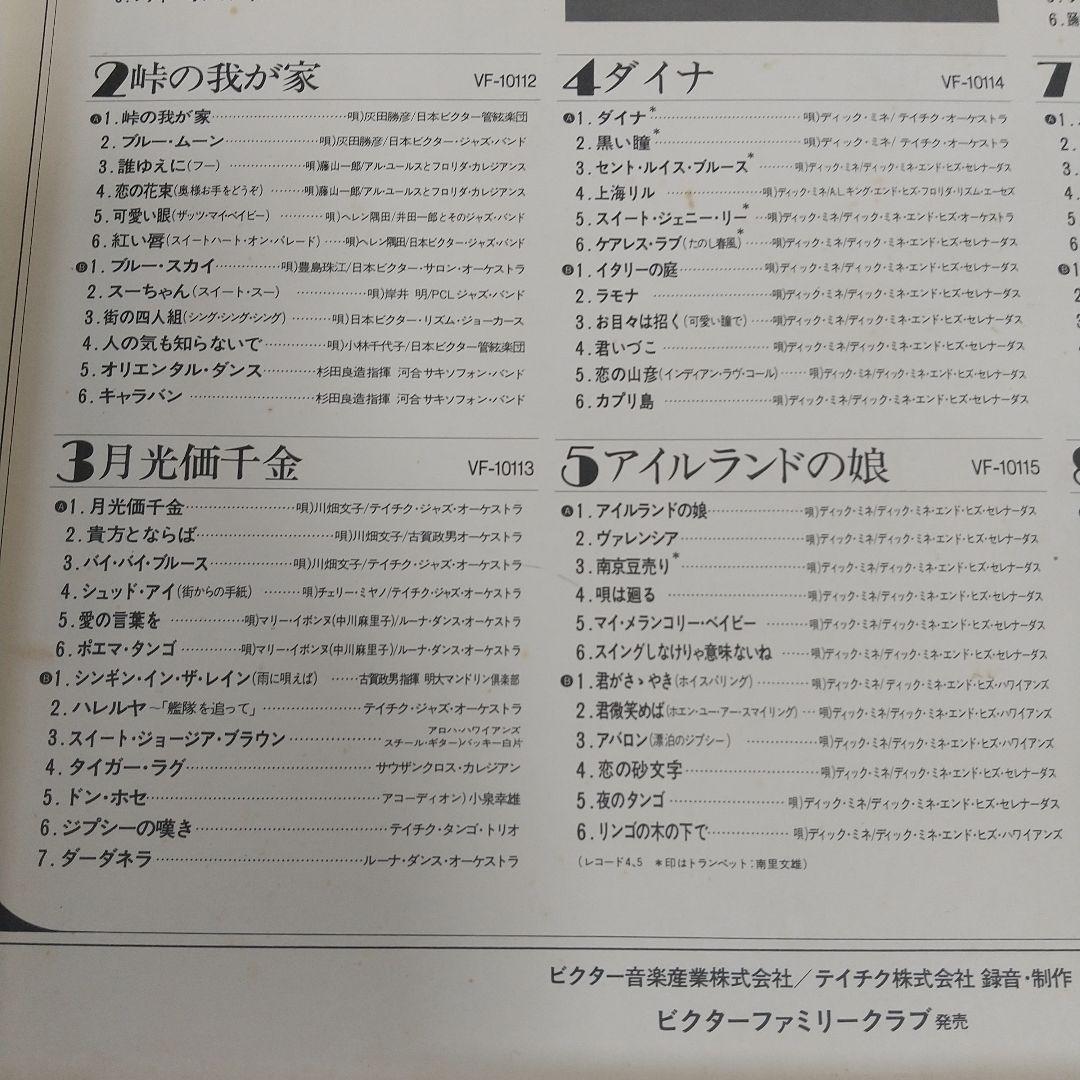 2 峠の我が家 VF-10112
A 1. 峠の我が家……唄)灰田勝彦/日本ビクター管絃楽団
2. ブルー・ムーン……唄)灰田勝彦/日本ビクター・ジャズ・バンド
3. 誰ゆえに(フー)……唄)藤山一郎/アル・ユールスとフロリダ・カレジアンス
4. 恋の花束(奥様お手をどうぞ)……唄)藤山一郎/アル・ユールスとフロリダ・カレジアンス
5. 可愛い眼(ザッツ・マイ・ベイビー)……唄)ヘレン隅田/井田一郎とそのジャズ・バンド
6. 紅い唇(スイートハート・オン・パレード)……唄)ヘレン隅田/日本ビクター・ジャズ・バンド
B 1. ブルー・スカイ……唄)豊島珠江/日本ビクター・サロン・オーケストラ
2. スーちゃん(スイート・スー)……唄)岸井 明/PCLジャズ・バンド
3. 街の四人組(シング・シング・シング)……唄)日本ビクター・リズム・ジョーカース
4. 人の気も知らないで……唄)小林千代子/日本ビクター管絃楽団
5. オリエンタル・ダンス……杉田良造指揮 河合サキソフォン・バンド
6. キャラバン……杉田良造指揮 河合サキソフォン・バンド
3 月光価千金 VF-10113
A 1. 月光価千金……唄)川畑文子/テイチク・ジャズ・オーケストラ
2. 貴方とならば……唄)川畑文子/古賀政男オーケストラ
3. バイ・バイ・ブルース……唄)川畑文子/テイチク・ジャズ・オーケストラ
4. シュッド・アイ(街からの手紙)……唄)チェリー・ミヤノ/テイチク・ジャズ・オーケストラ
5. 愛の言葉を……唄)マリー・イボンヌ(中川麻里子)/ルーナ・ダンス・オーケストラ
6. ポエマ・タンゴ……唄)マリー・イボンヌ(中川麻里子)/ルーナ・ダンス・オーケストラ
B 1. シンギン・イン・ザ・レイン(雨に唄えば)……古賀政男指揮 明大マンドリン倶楽部
2. ハレルヤ〜「艦隊を追って」……テイチク・ジャズ・オーケストラ
3. スイート・ジョージア・ブラウン……アロハ・ハワイアンズ
スチール・ギター)バッキー白片
4. タイガー・ラグ……サウザンクロス・カレジアン
5. ドン・ホセ……アコーディオン)小泉幸雄
6. ジプシーの嘆き……テイチク・タンゴ・トリオ
7. ダーダネラ……ルーナ・ダンス・オーケストラ
4 ダイナ VF-10114
A 1. ダイナ*……唄)ディック・ミネ/テイチク・オーケストラ
2. 黒い瞳*……唄)ディック・ミネ/テイチク・オーケストラ
3. セント・ルイス・ブルース*……唄)ディック・ミネ/ディック・ミネ・エンド・ヒズ・セレナーダス
4. 上海リル……唄)ディック・ミネ/A.L.キング・エンド・ヒズ・フロリダ・リズム・エーセズ
5. スイート・ジェニー・リー*……唄)ディック・ミネ/ディック・ミネ・エンド・ヒズ・オーケストラ
6. ケアレス・ラブ(たのし春風)*……唄)ディック・ミネ/ディック・ミネ・エンド・ヒズ・セレナーダス
B 1. イタリーの庭……唄)ディック・ミネ/ディック・ミネ・エンド・ヒズ・セレナーダス
2. ラモナ……唄)ディック・ミネ/ディック・ミネ・エンド・ヒズ・セレナーダス
3. お目々は招く(可愛い瞳で)……唄)ディック・ミネ/ディック・ミネ・エンド・ヒズ・セレナーダス
4. 君いづこ……唄)ディック・ミネ/ディック・ミネ・エンド・ヒズ・セレナーダス
5. 恋の山彦(インディアン・ラヴ・コール)……唄)ディック・ミネ/ディック・ミネ・エンド・ヒズ・セレナーダス
6. カプリ島……唄)ディック・ミネ/ディック・ミネ・エンド・ヒズ・セレナーダス
5 アイルランドの娘 VF-10115
A 1. アイルランドの娘……唄)ディック・ミネ/ディック・ミネ・エンド・ヒズ・セレナーダス
2. ヴァレンシア……唄)ディック・ミネ/ディック・ミネ・エンド・ヒズ・セレナーダス
3. 南京豆売り*……唄)ディック・ミネ/ディック・ミネ・エンド・ヒズ・セレナーダス
4. 唄は廻る……唄)ディック・ミネ/ディック・ミネ・エンド・ヒズ・セレナーダス
5. マイ・メランコリー・ベイビー……唄)ディック・ミネ/ディック・ミネ・エンド・ヒズ・セレナーダス
6. スイングしなけりゃ意味ないね……唄)ディック・ミネ/ディック・ミネ・エンド・ヒズ・セレナーダス
B 1. 君がさゝやき(ホイスパリング)……唄)ディック・ミネ/ディック・ミネ・エンド・ヒズ・ハワイアンズ
2. 君微笑めば(ホエン・ユー・アー・スマイリング)…唄)ディック・ミネ/ディック・ミネ・エンド・ヒズ・ハワイアンズ
3. アバロン(漂泊のジプシー)……唄)ディック・ミネ/ディック・ミネ・エンド・ヒズ・ハワイアンズ
4. 恋の砂文字……唄)ディック・ミネ/ディック・ミネ・エンド・ヒズ・セレナーダス
5. 夜のタンゴ……唄)ディック・ミネ/ディック・ミネ・エンド・ヒズ・セレナーダス
6. リンゴの木の下で……唄)ディック・ミネ/ディック・ミネ・エンド・ヒズ・ハワイアンズ
(レコード4、5 *印はトランペット:南里文雄)
7
ビクター音楽産業株式会社/テイチク株式会社 録音・制作
ビクターファミリークラブ 発売